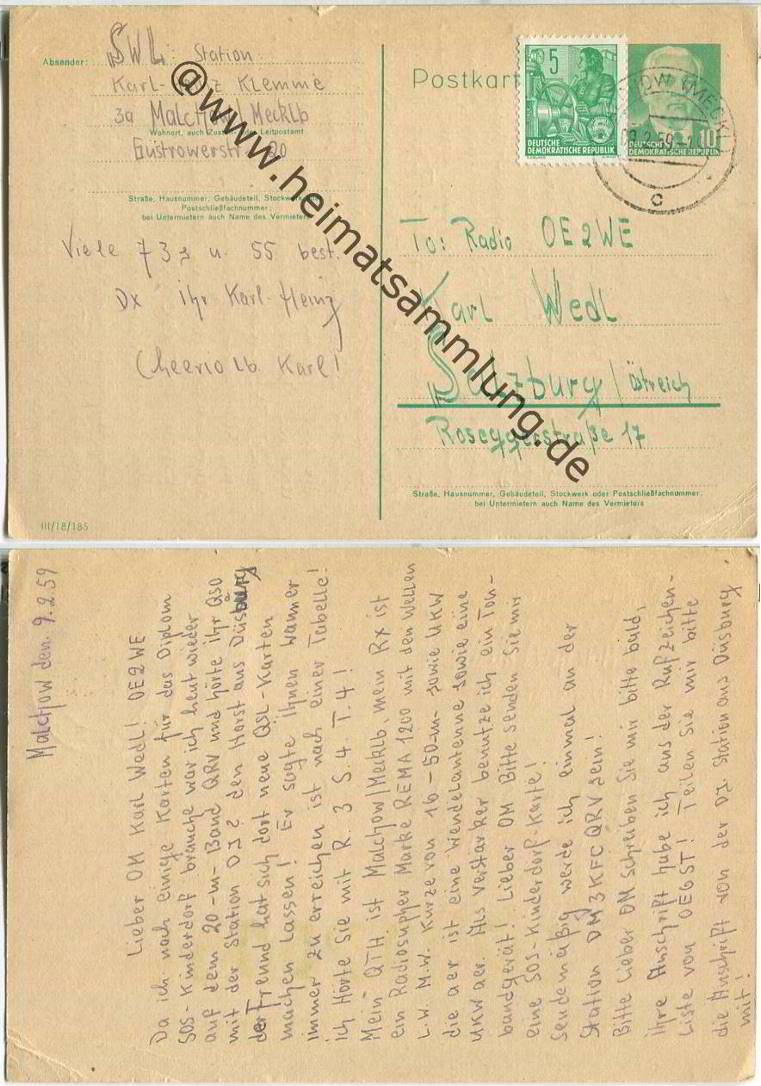 Absender: SWL: Station
Karl-Heinz Klemme
3a Malchow/Mecklb
Wohnort, auch Zustell- oder Leitpostamt
Güstrowerstr. 20
Straße, Hausnummer, Gebäudeteil, Stockwerk oder
Postschließfachnummer;
bei Untermietern auch Name des Vermieters
Viele 73s u. 55 best.
Dx ihr Karl-Heinz
Cheerio Lb Karl!
III/18/185
Postkarte
5
DEUTSCHE
DEMOKRATISCHE REPUBLIK
10
DEUTSCHE
DEMOKRATISCHE REPUBLIK
MALCHOW (MECKL)
09.2.59
c
To: Radio OE2WE
Karl Wedl
Salzburg / Östreich
Roseggerstraße 17
Straße, Hausnummer, Gebäudeteil, Stockwerk oder Postschließfachnummer;
bei Untermietern auch Name des Vermieters
@www.heimatsammlung.de
Malchow den. 9.2.59
Lieber OM Karl Wedl! OE2WE
Da ich noch einige Karten für das Diplom
SOS-Kinderdorf brauche war ich heut wieder
auf dem 20-m-Band QRV und hörte ihr QSO
mit der Station DJ2 den Horst aus Düsburg
der Freund hat sich dort neue QSL-Karten
machen Lassen! Er sagte Ihnen wanner
immer zu erreichen ist nach einer Tabelle!
ich Hörte Sie mit R. 3 S. 4. T. 4!
Mein QTH ist Malchow/Mecklb, mein Rx ist
ein Radiosupher Marke REMA 1200 mit den Wellen
L.W. M.W. Kurze von 16-50-m- sowie UKW
die aer ist eine Wendelantenne sowie eine
UKW aer. Als Verstärker benutze ich ein Ton-
bandgerät! Lieber OM Bitte senden Sie mir
eine SOS-Kinderdorf-Karte!
Sendemäßig werde ich einmal an der
Station DM3KFC QRV sein!
Bitte Lieber OM schreiben Sie mir bitte bald,
ihre Anschrift habe ich aus der Rufzeichen-
Liste von OE6ST! Teilen Sie mir bitte
die Anschrift von der DJ. Station aus Düsburg
mit!